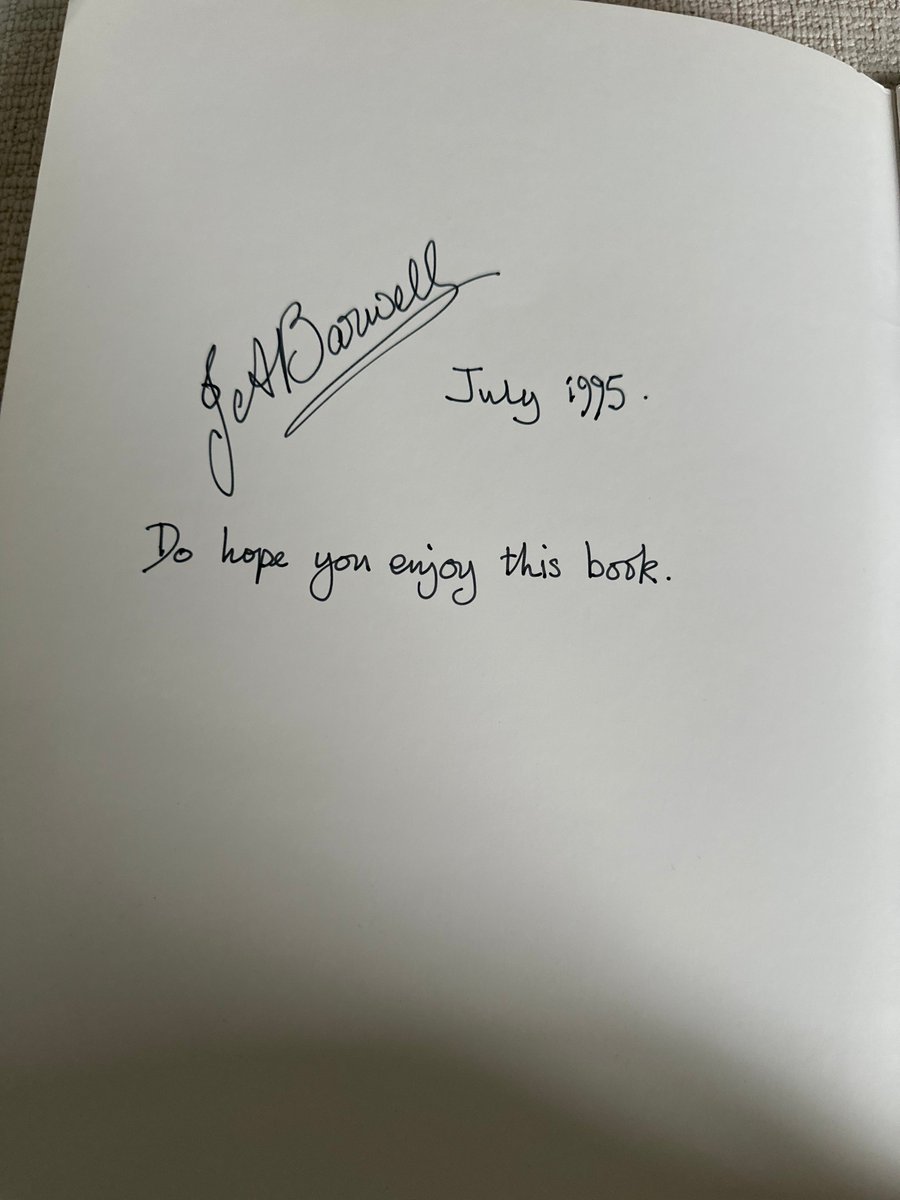 J A Barwell
July 1995.
Do hope you enjoy this book.